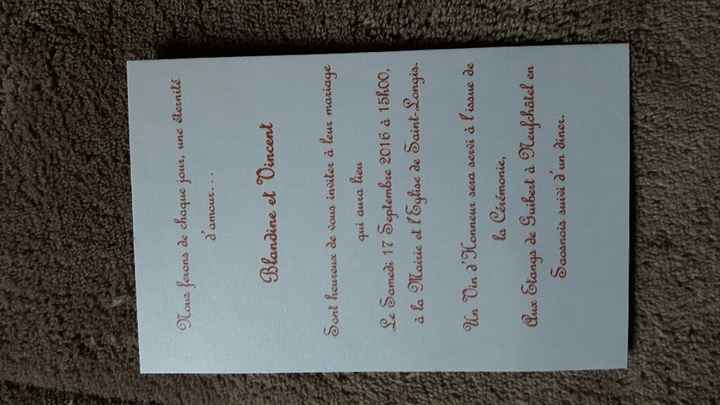 Nous ferons de chaque jour, une éternité
d'amour...
Blandine et Vincent
Sont heureux de vous inviter à leur mariage
qui aura lieu
Le Samedi 17 Septembre 2016 à 15h00,
à la Mairie et l'Eglise de Saint-Longis.
Un Vin d'Honneur sera servi à l'issue de
la Cérémonie,
Aux Etangs de Guibert à Neufchâtel en
Saosnois suivi d'un diner.